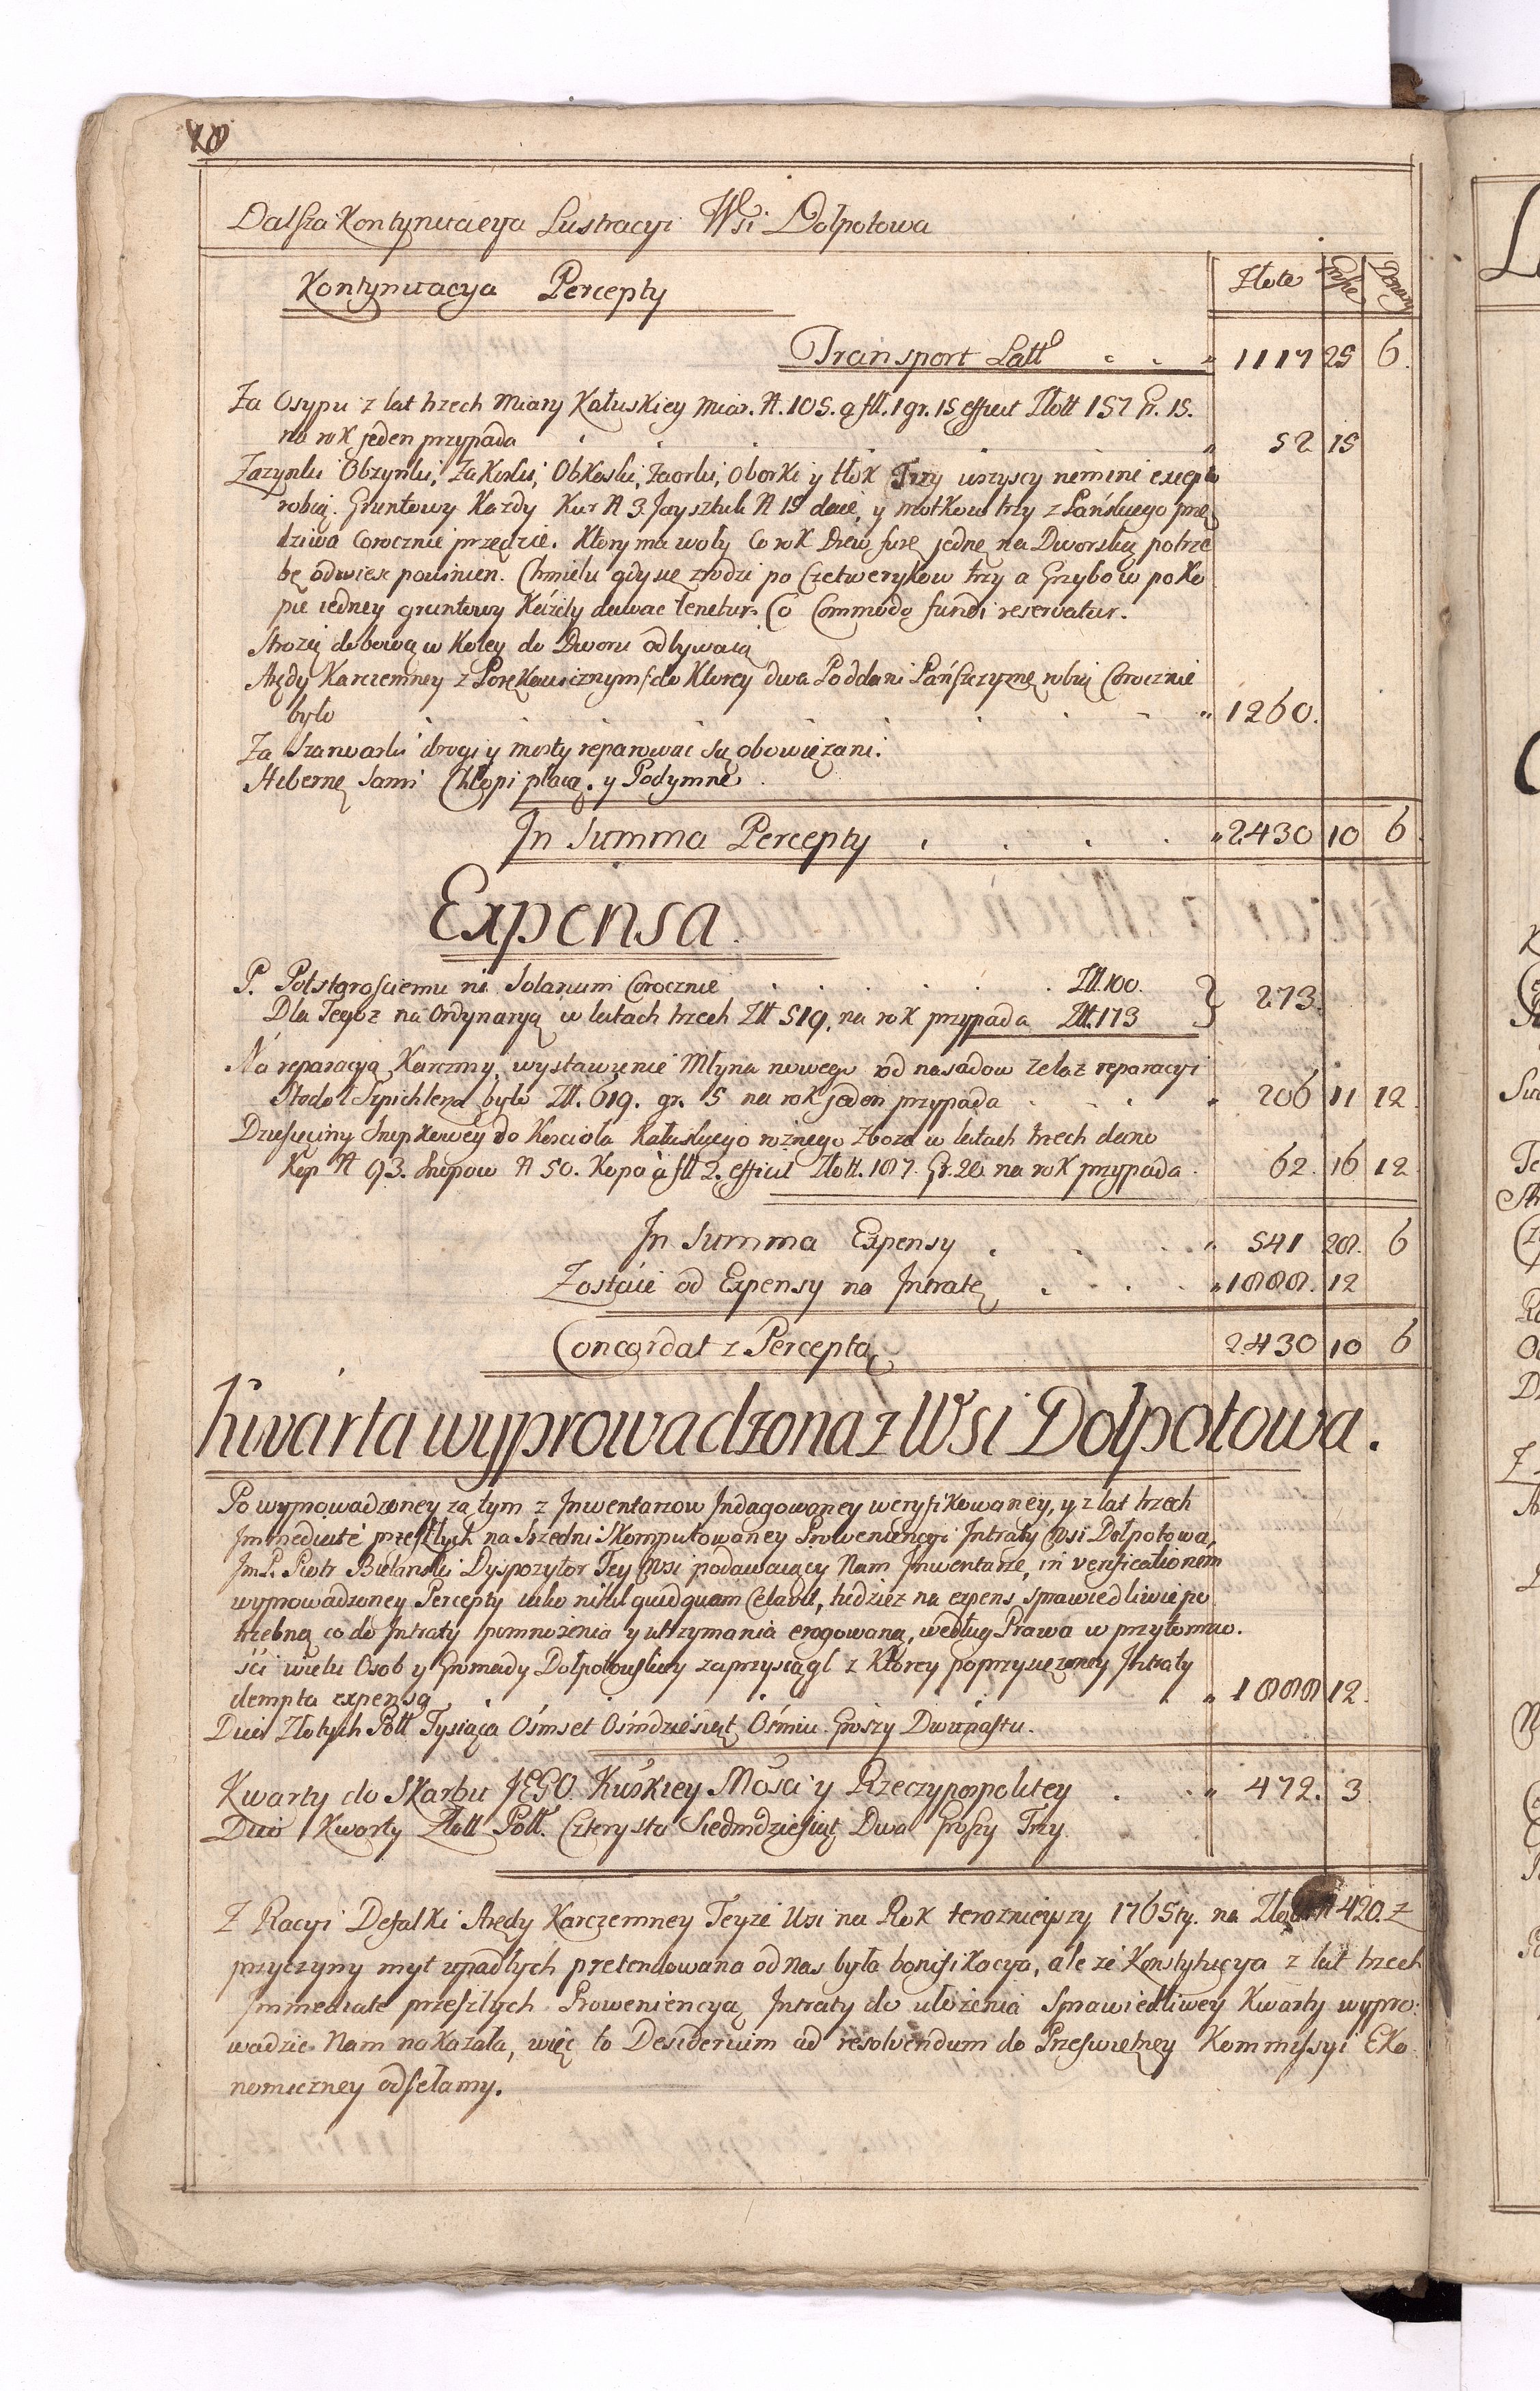 Dalsza Kontynuacya Lustracyi Wsi Dołpotowa
Kontynuacya Percepty
Złote Grosze Denary
Transport Latt 1117 25 6
Za Osypu z lat trzech Miary Kałuskiey Miar. N. 105. a fl. 1 gr. 15 efficit Złott 157 Gr. 15.
na rok jeden przypada 52 15
Zazynki Obzynki, Zakoski, Obkoski, Zaorki, Oborki y tłok Trzy wszyscy nemine excepto
robią. Gruntowy Kazdy Kur N 3 Jay sztuk N 15 daie, y motkow trzy z Pańskiego przę
dziwa Corocznie przędzie. Ktory ma woły Co rok Drew furę jednę na Dworską potrze
bę odwiesc powinien. Chmielu gdy się zrodzi po Czetwerykow trzy a Grzybow po Ko
pie iedney gruntowy Kożdy dawac tenetur. Co Commodo fundi reservatur.
Strozą dobową w Koley do Dworu odbywaią
Arędy Karczemney z Porękawicznym /do Ktorey dwa Poddani Pańszczyznę robią Corocznie
było 1260.
Za Szarwarki drogi y mosty reparowac są obowiązani.
Hibernę Sami Chłopi płacą. y Podymne.
In Summa Percepty 2430 10 6
Expensa.
P. Potstarosciemu na Solarium Corocznie Złł. 100.
Dla Tegoz na Ordynaryą w latach trzech Złł 519, na rok przypada Złł. 173 273.
Na reparacyą Karczmy, wystawienie Młyna nowego od nasadow Zelaz reparacyi
Stodoł Szpichlerza było Złł. 619. gr. 5 na rok jeden przypada 206 11 12.
Dziesięciny Snopkowey do Kosciola Kałuskiego roznego Zboza w latach trzech dano
Kop N 93. Snopow N 50. Kopa a fll 2. efficit Złott. 187. Gr. 20 na rok przypada 62. 16 12
In Summa Expensy 541 28. 6
Zostaie od Expensy na Intratę 1888. 12
Concordat z Perceptą 2430 10 6
Kwarta wyprowadzona z Wsi Dołpotowa.
Po wyprowadzoney za tym z Inwentarzow Indagowaney weryfikowaney, y z lat trzech
Immediate przeszłych na Srzedni Skomputowaney Proweniencyi Intraty Wsi Dołpotowa,
Jm P. Piotr Bielanski Dyspozytor Tey Wsi podawaiący Nam Inwentarze, in verificationem
wyprowadzoney Percepty iako nihil quidquam Celavit, tudziez na expens sprawiedliwie po
trzebną co do Intraty pomnozenia y utrzymania erogowaną, według Prawa w przytomno.
sci wielu Osob y Gromady Dołpotowskiey zaprzysiągł z Ktorey poprzysięzoney Intraty
dempta expensa 1888 12.
Duio Złotych Poll Tysiąca Osmset Osmdziesiąt Osmiu Groszy Dwunastu.
Kwarty do Skarbu JEGO Kuskiey Mosci y Rzeczypospolitey 472. 3
Duio Kwarty Złott Poll. Czterysta Siedmdziesiąt Dwa Groszy Trzy
Z Racyi Defalki Arędy Karczemney Teyze Wsi na Rok teraznieyszy 1765ty. na 420. z
przyczyny myt upadłych pretendowana od nas była bonifikacya, ale ze Konstytucya z lat trzech
Immediate przeszłych Proweniencyą Intraty do ułozenia Sprawiedliwey Kwarty wypro:
wadzic Nam nakazała, więc to Desiderium ad resolvendum do Przeswietney Kommissyi Eko
nomiczney odsełamy.